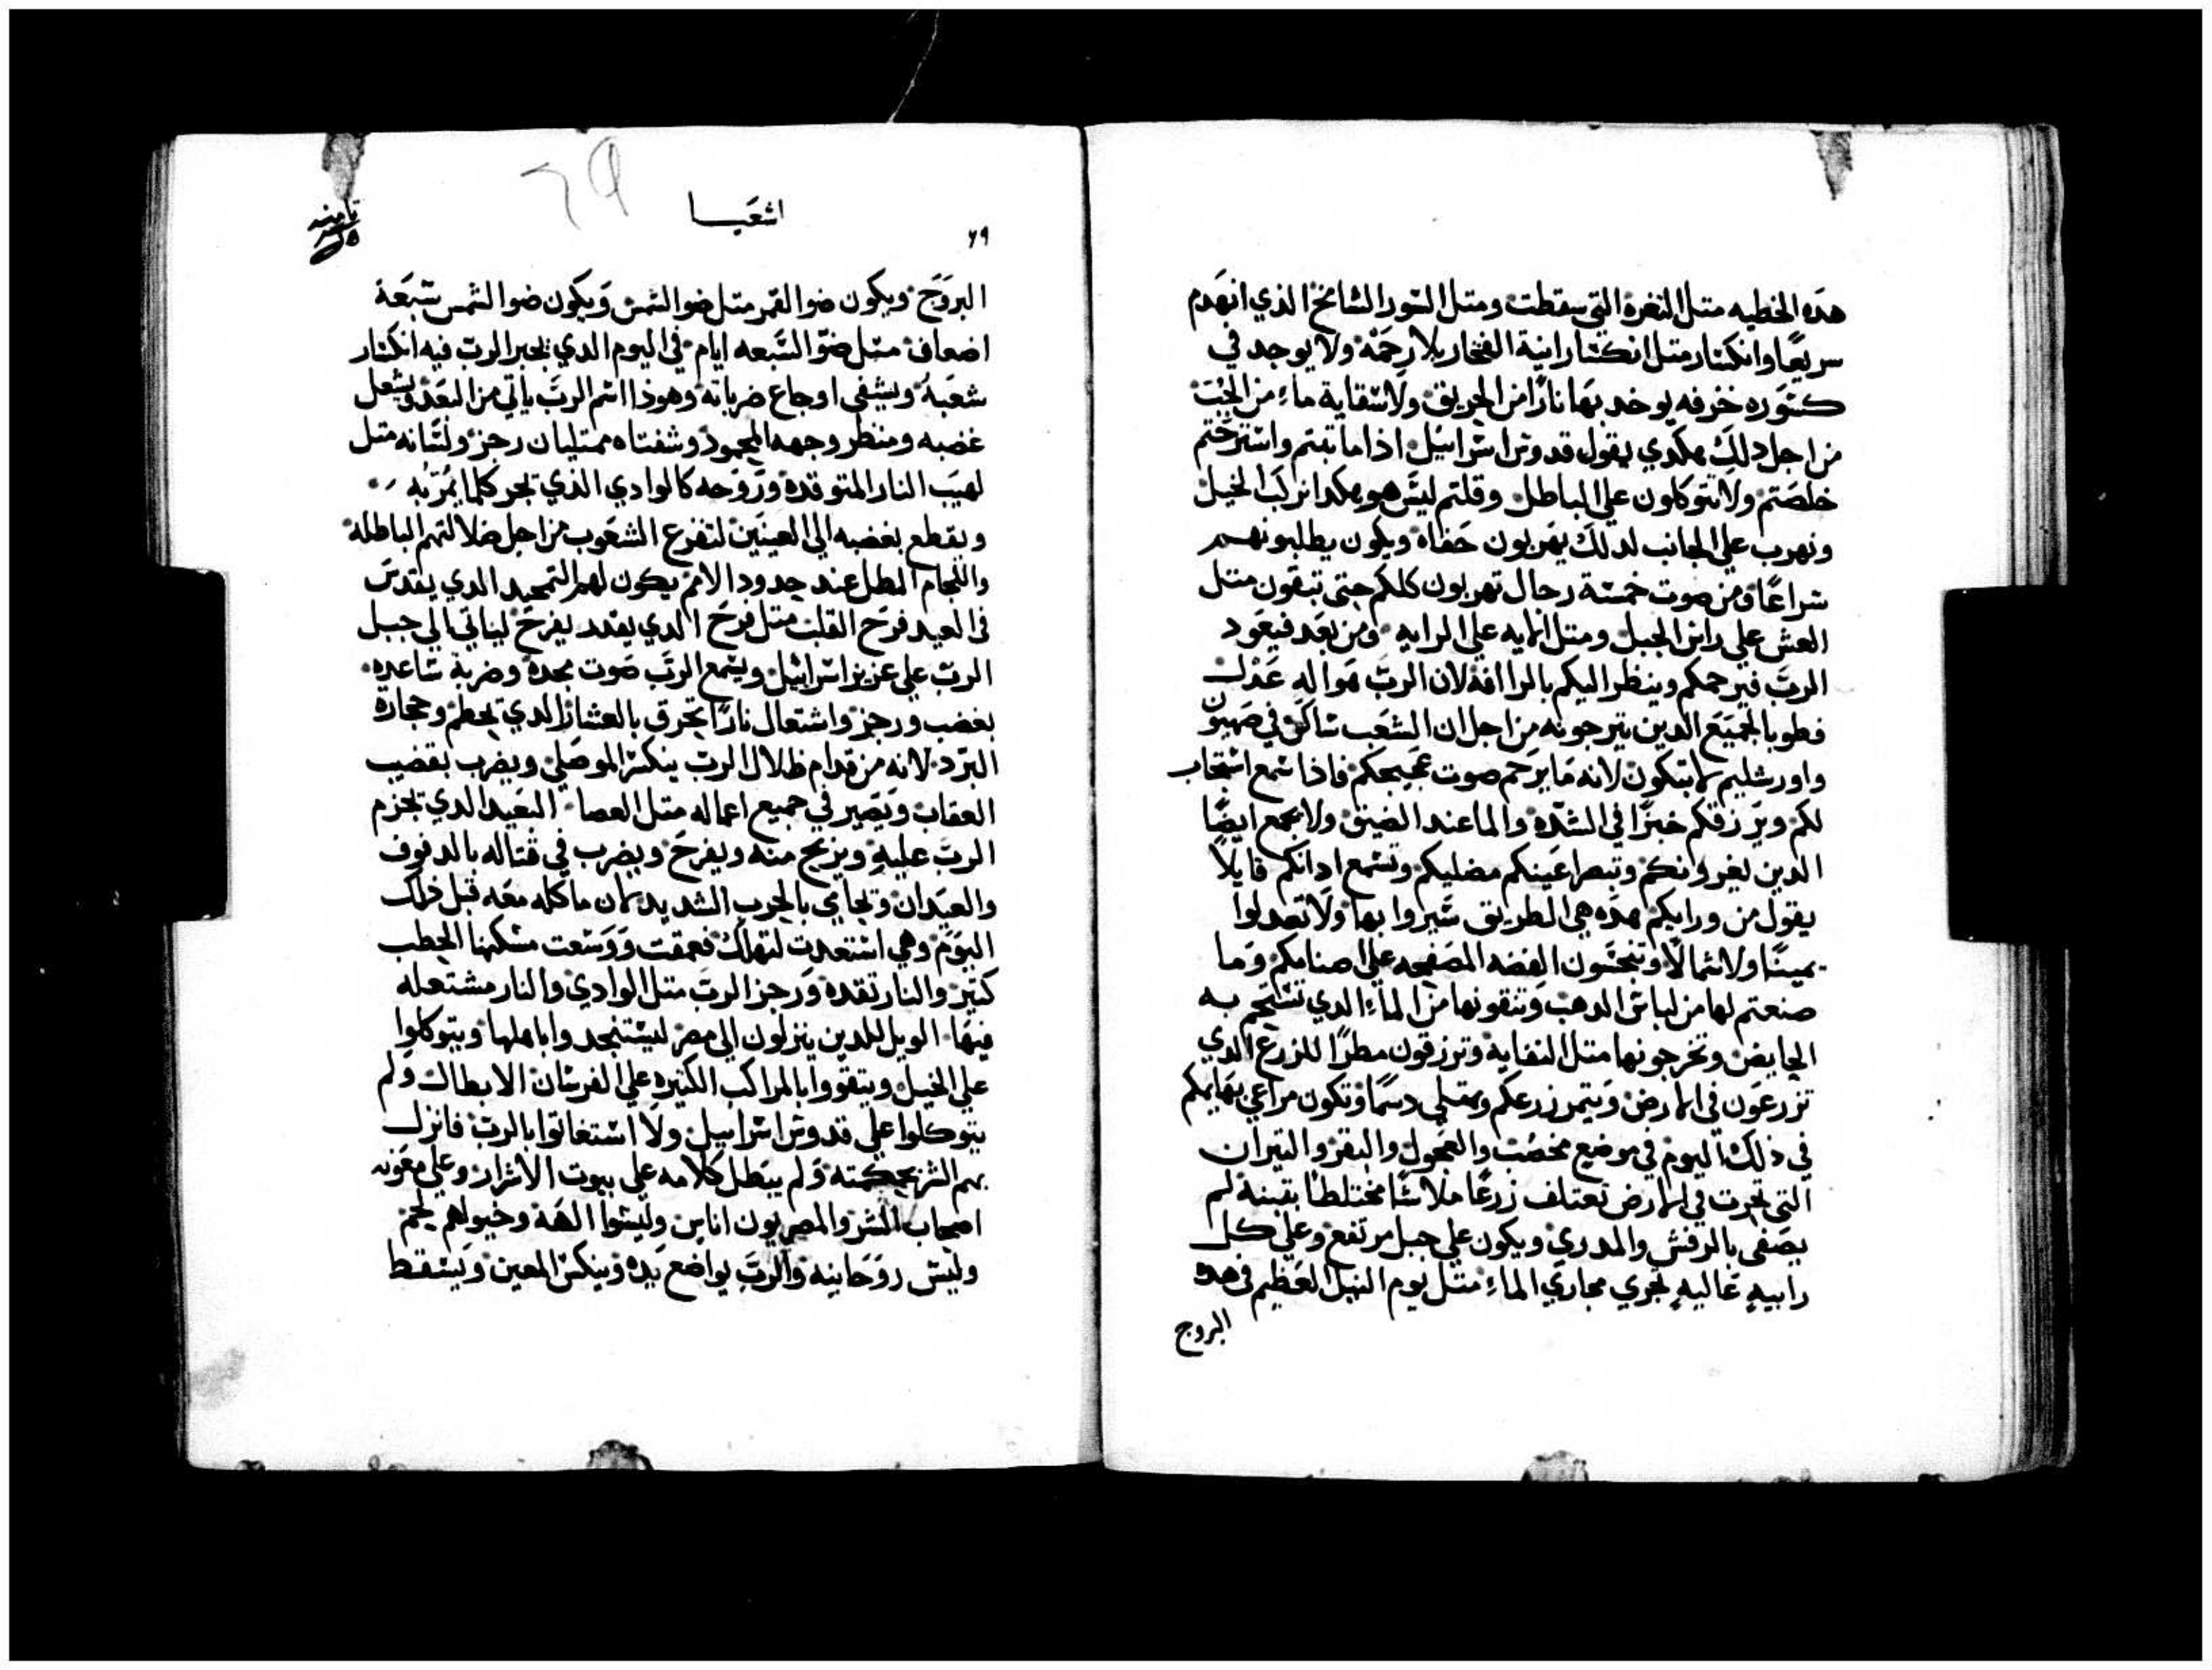 هده الخطيه متل الثغرة التي سقطت ومتل السور الشامخ الذي انهدم
سريعًا وانكسار متل انكسار انية الفخار بلا رحمة ولا يوجد في
كسوره خزفه يوخد بها نارًا من الحريق ولا سقاية ماء من الجب
من اجل دلك هكدي يقول قدوس اسراييل اذا ما تبتم واسترحتم
خلصتم ولا تتوكلون علي الباطل وقلتم ليس هو هكدا نركب الخيل
ونهرب علي الجانب لدلك يهربون حفاه ويكون يطلبونهم
سراعًا ومن صوت خمسة رجال تهربون كلكم حتي تبقون متل
العش علي راس الجبل ومتل الرايه علي الرابيه ومن بعد فيعود
الرب فيرحمكم وينظر اليكم بالرافة لان الرب هو اله عدل
فطوبا لجميع الدين يترجونه من اجل ان الشعب ساكن في صهيون
واورشليم لا تبكون لانه ما يرحم صوت عجيجكم فاذا سمع استجاب
لكم ويرزقكم خبزًا في الشدة والما عند الضيق ولا يجمع ايضًا
الدين لغير وانكم وتبصر اعينكم مضليكم وتسمع ادانكم قايلًا
يقول من ورايكم هده هي الطريق سيروا بها ولا تعدلوا
يمينًا ولا شمالًا وتنجسون الفضه المصفحه علي اصنامكم وما
صنعتم لها من لباس الدهب وتنقونها من الماء الدي تستحم به
الحايض وتخرجونها متل النفاية وترزقون مطرًا للزرع الدي
تزرعون في الارض ويتمر زرعكم ويمتلي دسمًا وتكون مراعي بهايمكم
في ذلك اليوم في موضع مخصب والعجول والبقر والتيران
التي تحرت في الارض تعتلف زرعًا ملاسًا مختلطًا بتبنة لم
يصفي بالرفش والمدري ويكون علي جبل مرتفع وعلي كل
رابيه عاليه تجري مجاري الماء متل يوم النيل العظيم في هده
البروج
اشعيا
٢٩
البروج ويكون ضوا القمر متل ضو الشمس ويكون ضوا الشمس سبعة
اضعاف متل ضو السبعه ايام في اليوم الدي يجبر الرب فيه انكسار
شعبه ويشفي اوجاع ضرباته وهوذا اسم الرب ياتي من البعد ويشعل
غضبه ومنظر وجهه المجمود وشفتاه ممتليان رجز ولسانه متل
لهيب النار المتوقده وروحه كالوادي الذي تجر كلما يمر به
ويقطع بغضبه الي العينين لتفزع الشعوب من اجل ضلالتهم الباطله
واللجام المطل عند حدود الامم يكون لهم التمجيد الدي يقدس
في العيد فرح القلب متل فرح الدي يقدد يفرح لياتي الي جبل
الرب علي عزيز اسراييل ويسمع الرب صوت مجده وضربة ساعده
بغضب ورجز واشتعال نارًا تحرق بالعشار الدي يحطم وحجارة
البرد لانه من قدام ظلال الرب ينكسر الموصلي ويضرب بقضيب
العقاب ويصير في جميع اعماله متل العصا البعيد الدي يجزم
الرب عليه ويزيح منه ويفرح ويضرب في قتاله بالدفوف
والعيدان وتجازي بالحرب الشديد لان ماكله معه قبل ذلك
اليوم وهي استعدت لتهلك فعمقت ووسعت مسكنها الحطب
كتير والنار تقده ورجز الرب متل الوادي والنار مشتعله
فيها الويل للدين ينزلون الي مصر ليستنجدوا باهلها ويتوكلوا
علي الخيل ويتقووا بالمراكب الكتيره علي الفرسان الابطال ولم
يتوكلوا علي قدوس اسراييل ولا استغاتوا بالرب فانزل
بهم الشر بحكمته ولم يبطل كلامه علي بيوت الاشرار وعلي معونه
اصحاب الشر والمصريون اناس وليسوا الهة وخيولهم لحم
وليس روحانيه والرب يواضع يده وينكس المعين ويسقط